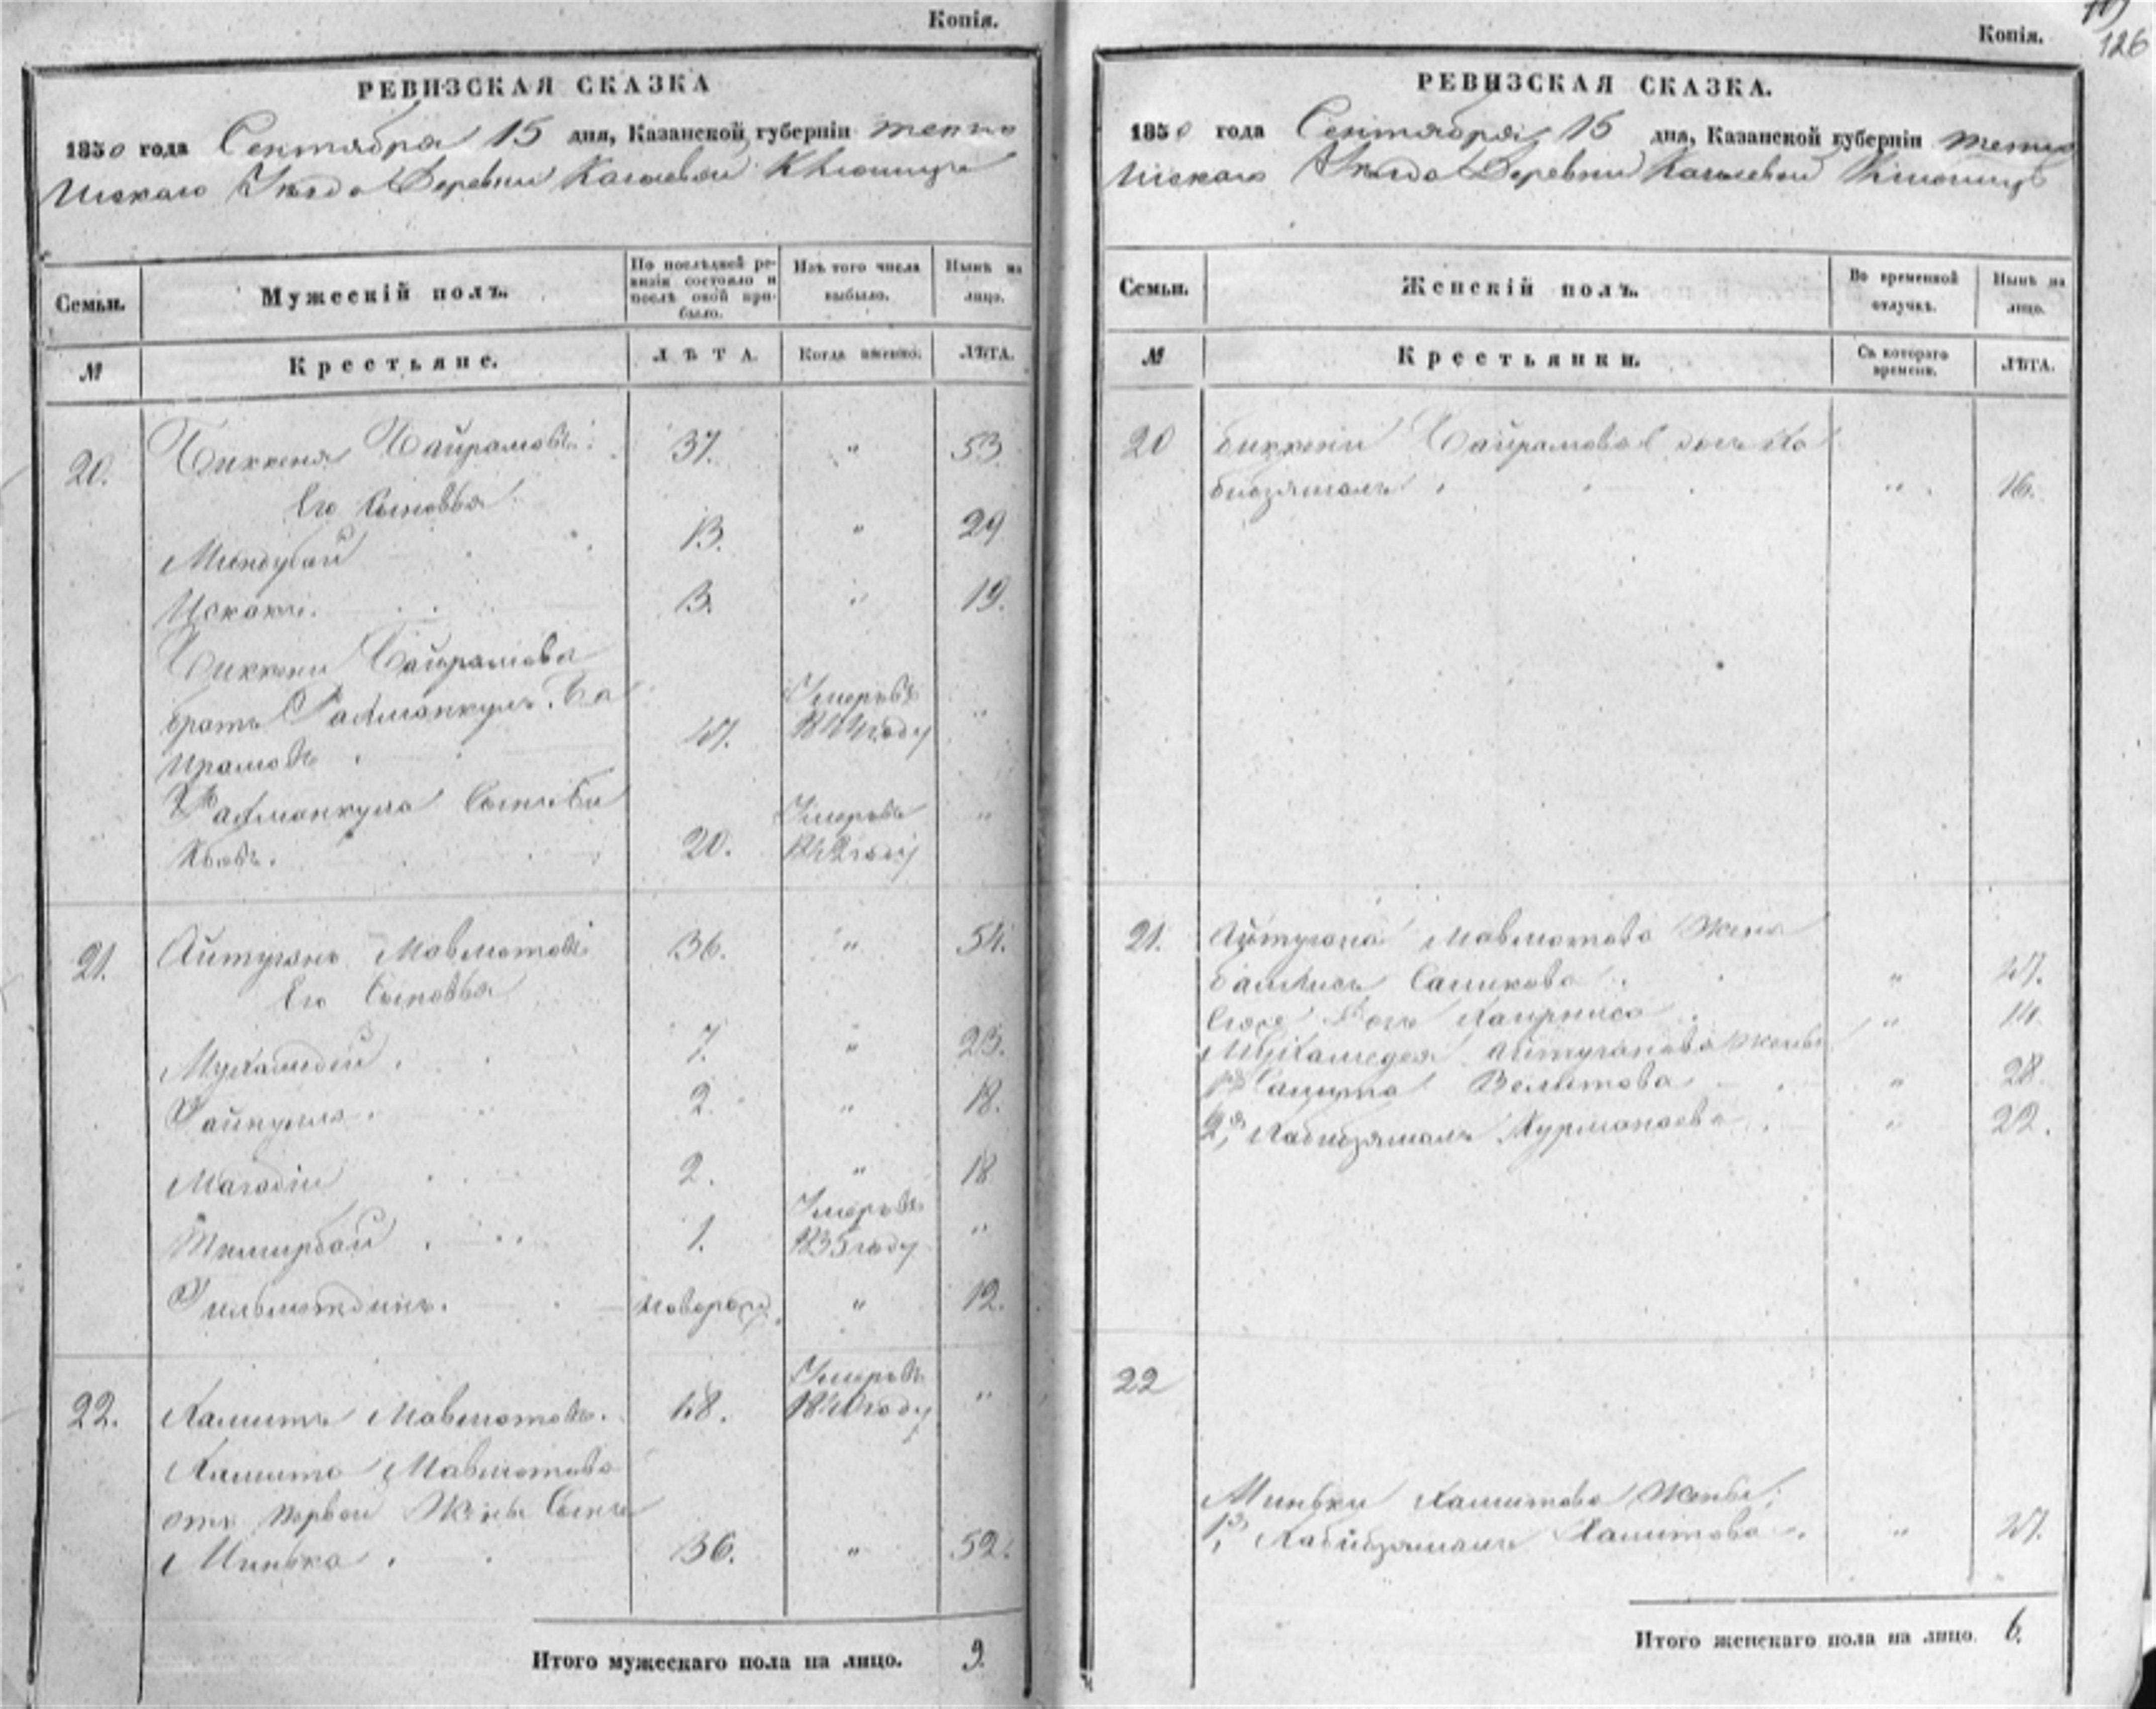 Копія.
РЕВИЗСКАЯ СКАЗКА
1850 года Сентября 15 дня, Казанской губерніи Тетю
шскаго Уѣзда Деревни Ключище
Семьи.
Мужескій полъ.
По послѣдней ре-
визіи состояло и
послѣ оной при-
было.
Изъ того числа
выбыло.
Нынѣ на
лицо.
№
Крестьяне.
ЛѢТА.
Когда именно.
ЛѢТА.
20. Биккеня Байрамовъ. 37. " 53
Его Сыновья
Миндубай 13. " 29
Исхакъ. 3. " 19.
Биккени Байрамова
братъ Рахманкулъ Ба
йрамовъ 47. Умеръ въ 1844 году "
Рахманкула Сынъ Би
20. Умеръ въ 1842 году "
21. Айтуганъ Мавлютовъ 36. " 54.
Его Сыновья
Мухамедій 7. " 23.
2. " 18.
Магадій 2. " 18
Тимирбай 1. Умеръ въ 1835 году "
новорож. " 12.
22. Хамитъ Мавлютовъ. 68. Умеръ въ 1840 году "
Хамита Мавлютова
отъ первой Жены Сынъ
Минька 36. " 52.
Итого мужескаго пола на лицо. 9.
Копія.
126
РЕВИЗСКАЯ СКАЗКА.
1850 года Сентября 15 дня, Казанской губерніи Тетю
шскаго Уѣзда Деревни Ключище
Семьи.
Женскій полъ.
Во временной
отлучкѣ.
Нынѣ на
лицо.
№
Крестьянки.
Съ котораго
времени.
ЛѢТА.
20 Биккени Байрамова дочь Ха
бибзямалъ " 16.
21. Айтугана Мавлютова Жена
Салихова " 47.
дочь " 14
Мухамедея Айтуганова Жены
1я Сагита Велитова " 28
2я Хабибзямалъ Курманаева " 22.
22
Миньки Хамитова Жены;
1я, Хабибзямалъ Халитова " 47.
Итого женскаго пола на лицо 6.